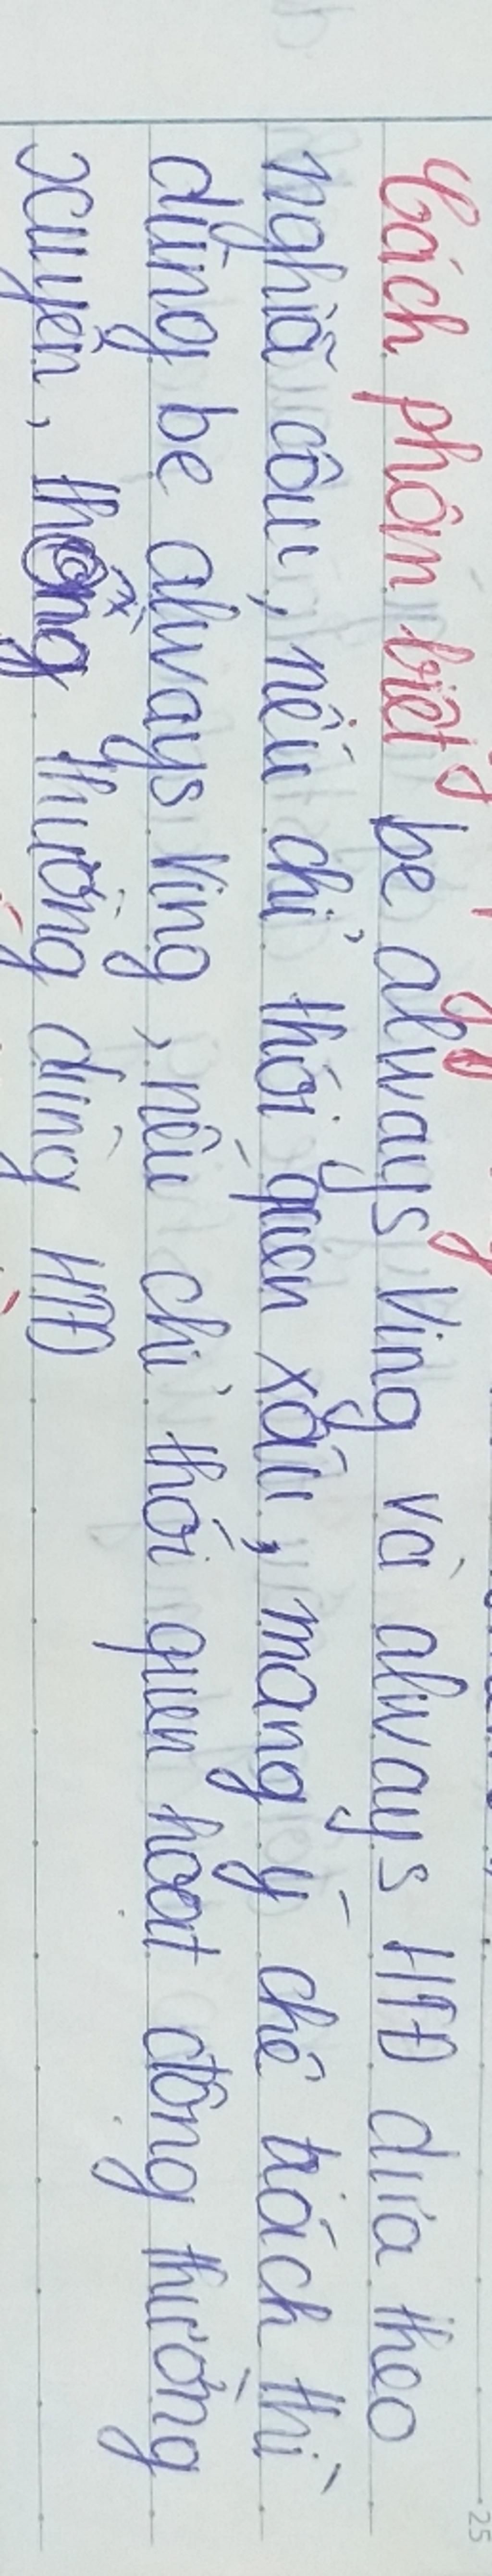 Cách phân biệt be always Ving và always HTĐ dựa theo
nghĩa câu, nếu chỉ thói quen xấu, mang ý chê trách thì
dùng be always Ving, nếu chỉ thói quen hoạt động thường
xuyên, thông thường dùng HTĐ
25